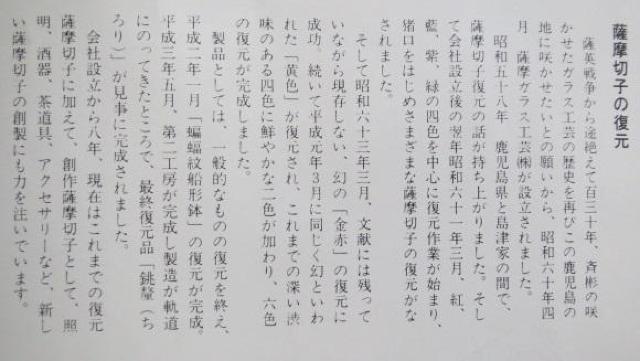 薩摩切子の復元
薩英戦争から途絶えて百三十年、斉彬の咲
かせたガラス工芸の歴史を再びこの鹿児島の
地に咲かせたいとの願いから、昭和六十年四
月　薩摩ガラス工芸㈱が設立されました。
昭和五十八年　鹿児島県と島津家の間で、
薩摩切子復元の話が持ち上がりました。そし
て会社設立後の翌年昭和六十一年三月、紅、
藍、紫、緑の四色を中心に復元作業が始まり、
猪口をはじめさまざまな薩摩切子の復元がな
されました。
そして昭和六十三年三月、文献には残って
いながら現存しない、幻の「金赤」の復元に
成功。続いて平成元年3月に同じく幻といわ
れた「黄色」が復元され、これまでの深い渋
味のある四色に鮮やかな二色が加わり、六色
の復元が完成しました。
製品としては、一般的なものの復元を終え、
平成二年一月「蝙蝠紋船形鉢」の復元が完成。
平成三年五月、第二工房が完成し製造が軌道
にのってきたところで、最終復元品「銚釐（ち
ろり）」が見事に完成されました。
会社設立から八年、現在はこれまでの復元
薩摩切子に加えて、創作薩摩切子として、照
明、酒器、茶道具、アクセサリーなど、新し
い薩摩切子の創製にも力を注いでいます。